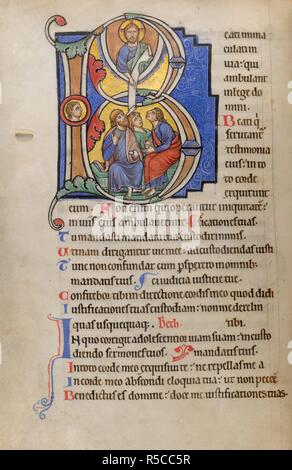 B
eati inma
culati in
uia: qui
ambulant
in lege do
mini.
Beati q̇
scrutant̄
testimonia
eius: in to
to corde
exquirunt
eum. Non enim qui operantur iniquitatē:
in uiis eius ambulauerunt.
Tu mandasti: mandata tua custodiri nimis.
Utinam dirigantur uie mee: ad custodiendas iusti
Tunc non confundar: cum ꝑspexero in omnib;
mandatis tuis.
Confitebor tibi in directione cordis: in eo quod didi
Iustificationes tuas custodiam: non me derelin
quas usquequaq;. Beth. tibi.
In quo corrigit adolescentior uiam suam: in custo
diendo sermones tuos. mandatis tuis.
In toto corde meo exquisiui te: ne repellas me a
In corde meo abscondi eloquia tua: ut non peccē
Benedictus es domine: doce me iustificationes tuas.
alamy
R5CC5R